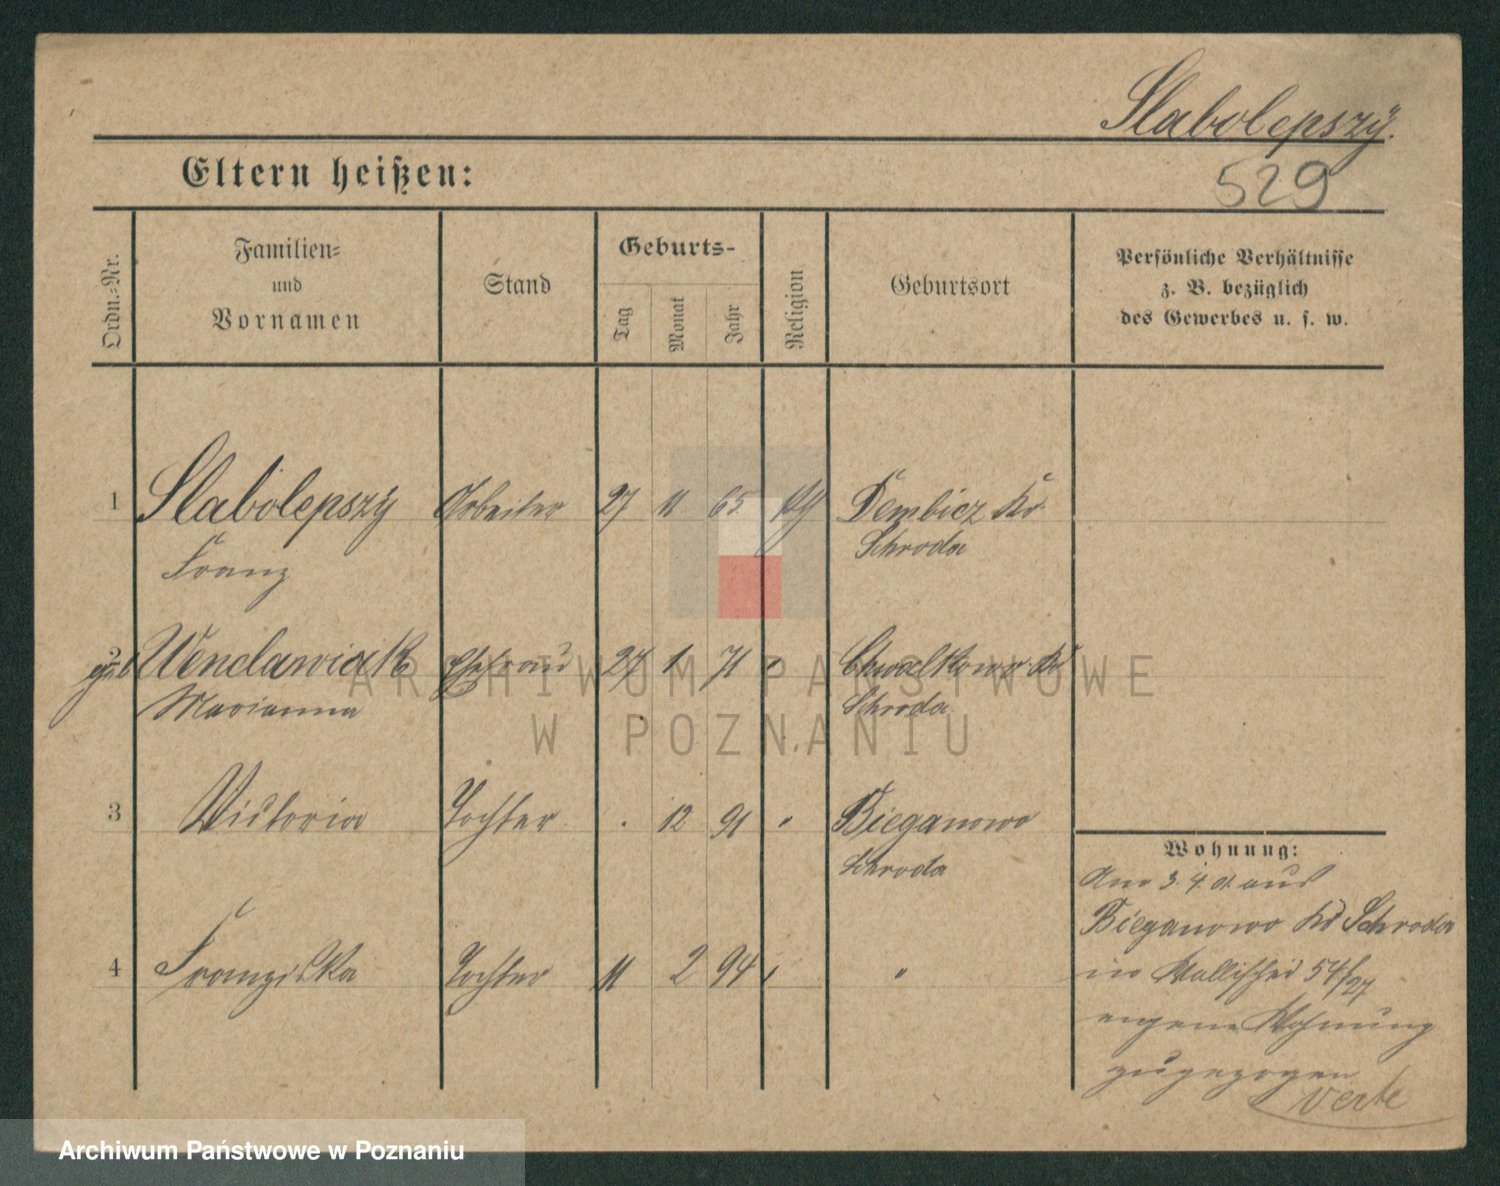 Slabolepszÿ.
Eltern heißen:
529
Ordn.-Nr.
Familien-
und
Vornamen
Stand
Geburts-
Tag
Monat
Jahr
Religion
Geburtsort
Persönliche Verhältnisse
z. B. bezüglich
des Gewerbes u. s. w.
1 Slabolepszÿ Arbeiter 27 11 65 Dembicz Kr.
Franz Schroda
2 geb Wenclawiak Ehefrau 27 1 71 " Kr
Marianna Schroda
3 Victoria Tochter . 12 91 " Bieganowo
Schroda
4 Franziska Tochter 11 2 94 " "
Wohnung:
Am 3. 4. aus
Bieganowo Kr Schroda
in Wallischei 54/27
eigene Wohnung
zugezogen
verte
ARCHIWUM PAŃSTWOWE
W POZNANIU
Archiwum Państwowe w Poznaniu